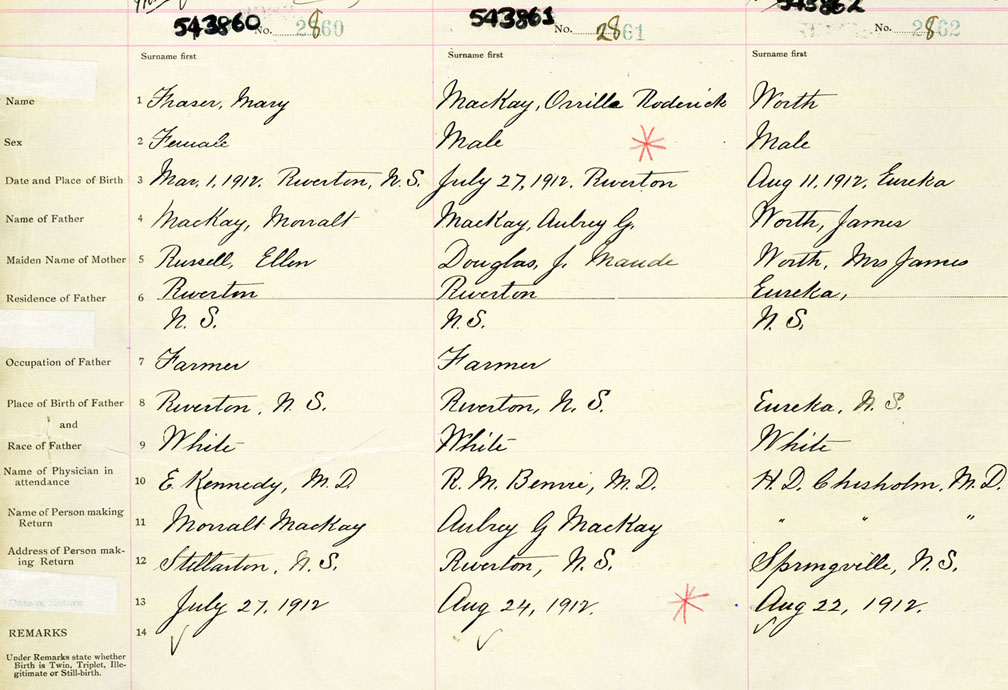 543860 543861 543862
No. 2860 No. 2861 No. 2862
Surname first Surname first Surname first
Name 1 Fraser, Mary MacKay, Orrilla Roderick Worth
Sex 2 Female Male Male
Date and Place of Birth 3 Mar. 1, 1912. Riverton, N.S. July 27, 1912. Riverton Aug 11, 1912. Eureka
Name of Father 4 MacKay, Morralt MacKay, Aubrey G. Worth, James
Maiden Name of Mother 5 Russell, Ellen Douglas, J. Maude Worth, Mrs James
Residence of Father 6 Riverton Riverton Eureka,
N.S. N.S. N.S.
Occupation of Father 7 Farmer Farmer
Place of Birth of Father 8 Riverton, N.S. Riverton, N.S. Eureka, N.S.
and
Race of Father 9 White White White
Name of Physician in
attendance 10 E. Kennedy, M.D. R. M. Benvie, M.D. H. D. Chisholm, M.D.
Name of Person making
Return 11 Morralt MacKay Aubrey G MacKay " " "
Address of Person mak-
ing Return 12 Stellarton, N.S. Riverton, N.S. Springville, N.S.
13 July 27, 1912 Aug 24, 1912. Aug 22, 1912.
REMARKS 14
Under Remarks state whether
Birth is Twin, Triplet, Ille-
gitimate or Still-birth.